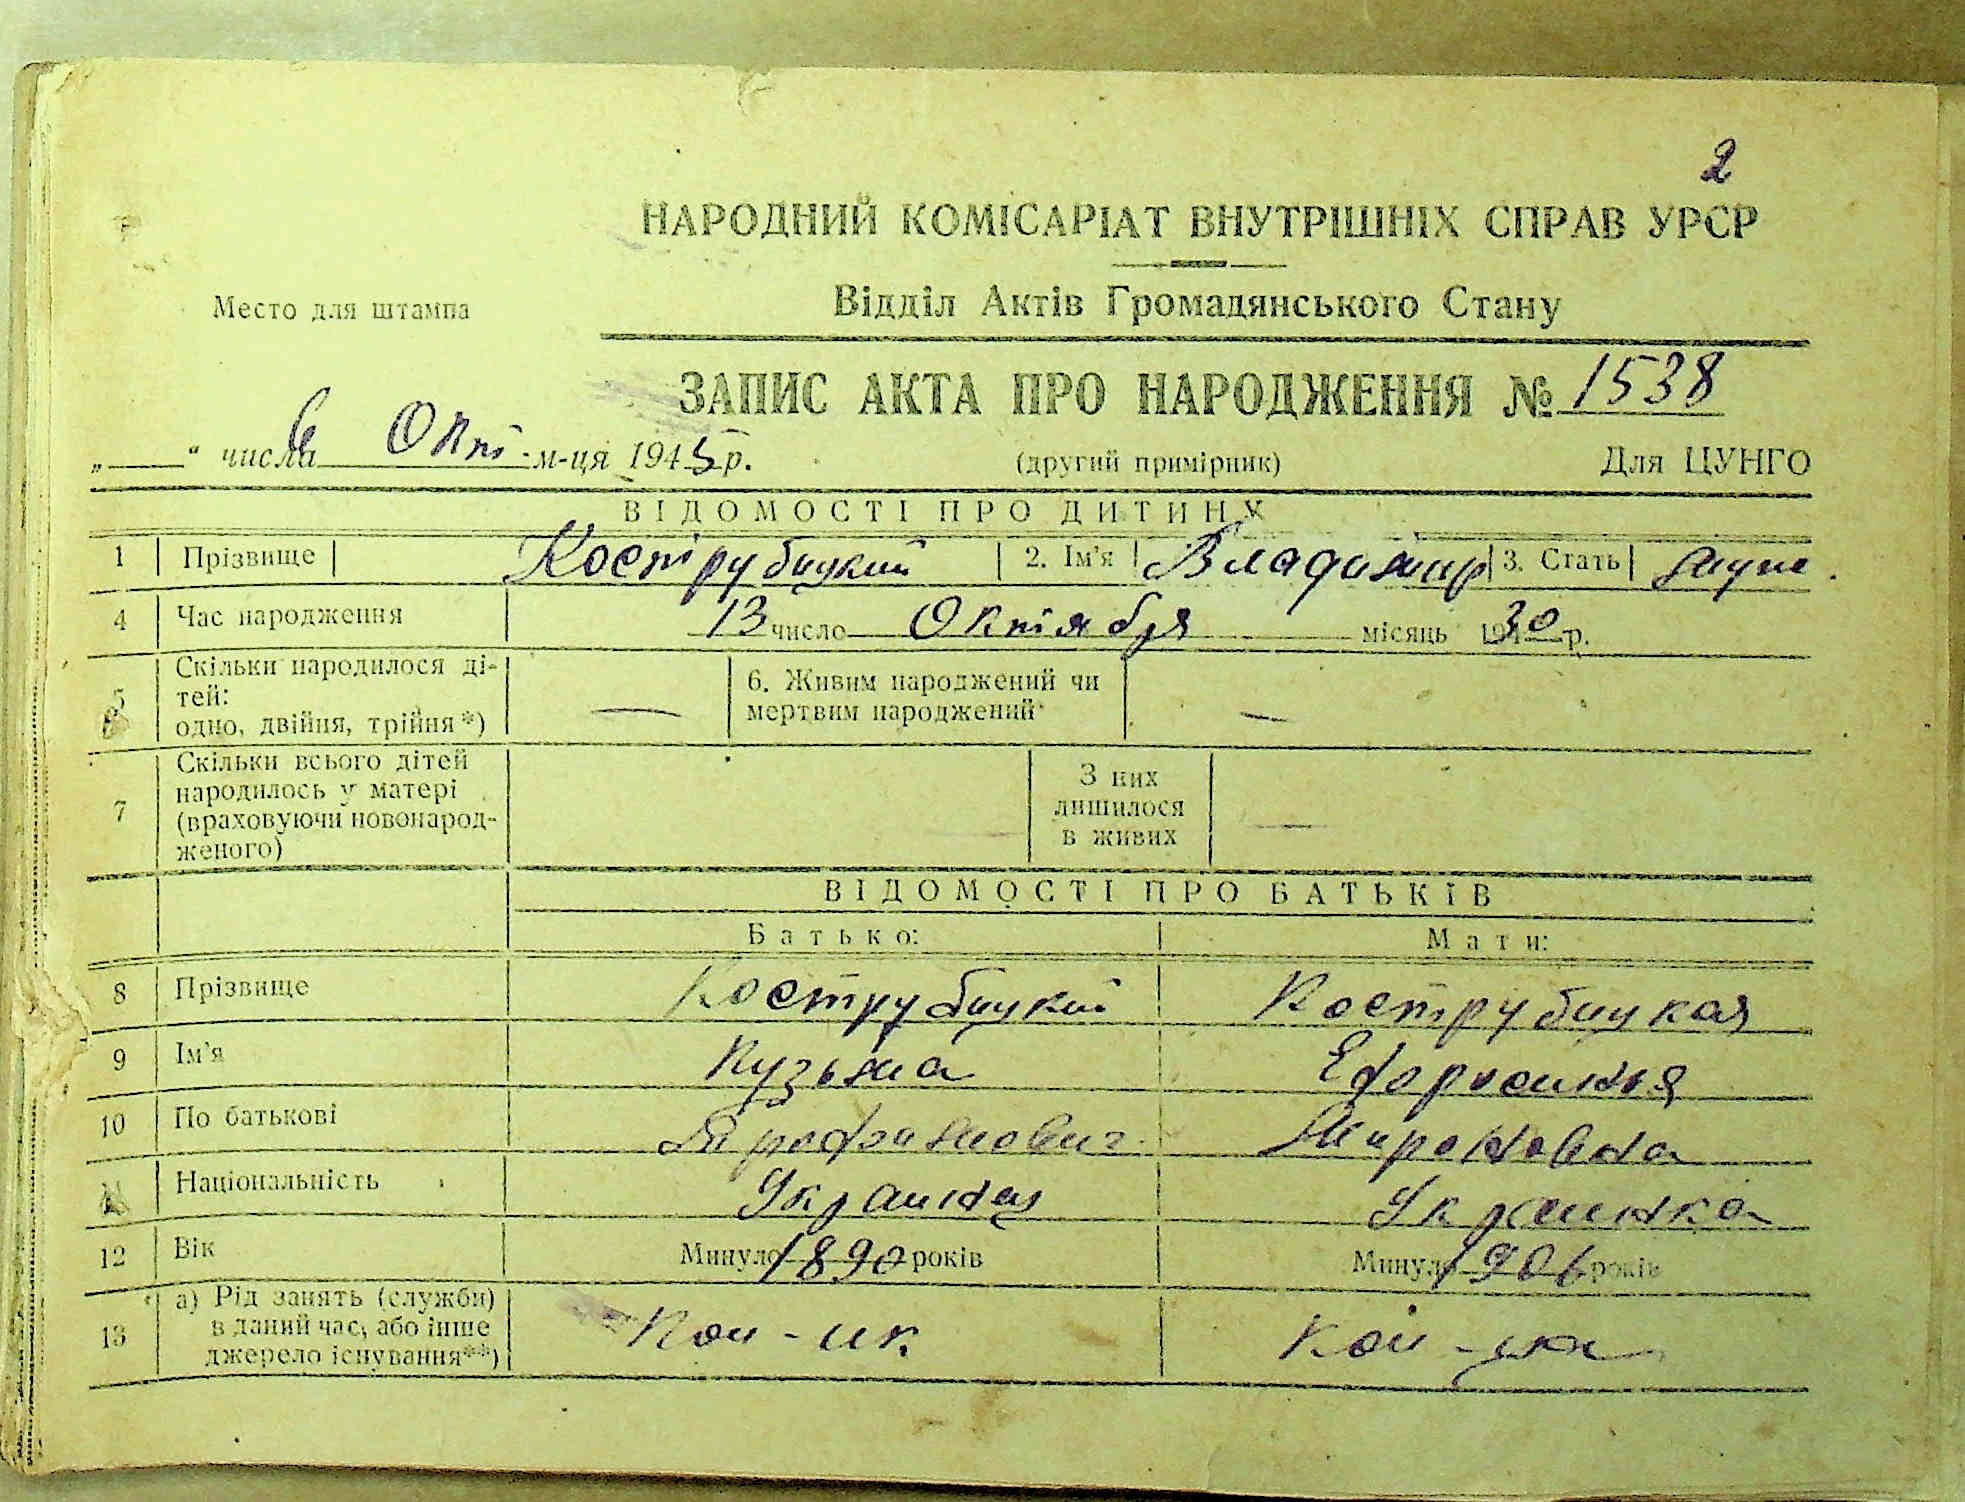 2
НАРОДНИЙ КОМІСАРІАТ ВНУТРІШНІХ СПРАВ УРСР
Место для штампа
Відділ Актів Громадянського Стану
ЗАПИС АКТА ПРО НАРОДЖЕННЯ № 1538
„ “ числа 6 Окт. м-ця 1945 р. (другий примірник) Для ЦУНГО
ВІДОМОСТІ ПРО ДИТИНУ
1 Прізвище Кострубицкий 2. Ім'я Владимир 3. Стать муж.
4 Час народження 13 число Октября місяць 1930 р.
5 Скільки народилося ді-
тей:
одно, двійня, трійня*) — 6. Живим народжений чи
мертвим народжений —
7 Скільки всього дітей
народилось у матері
(враховуючи новонарод-
женого) — З них
лишилося
в живих —
ВІДОМОСТІ ПРО БАТЬКІВ
Батько: Мати:
8 Прізвище Кострубицкий Кострубицкая
9 Ім'я Кузьма Ефросинья
10 По батькові Трофимович Мироновна
11 Національність Украинец Украинка
12 Вік Минуло 1890 років Минуло 1906 років
13 а) Рід занять (служби)
в даний час, або інше
джерело існування**) Кол-ик Кол-